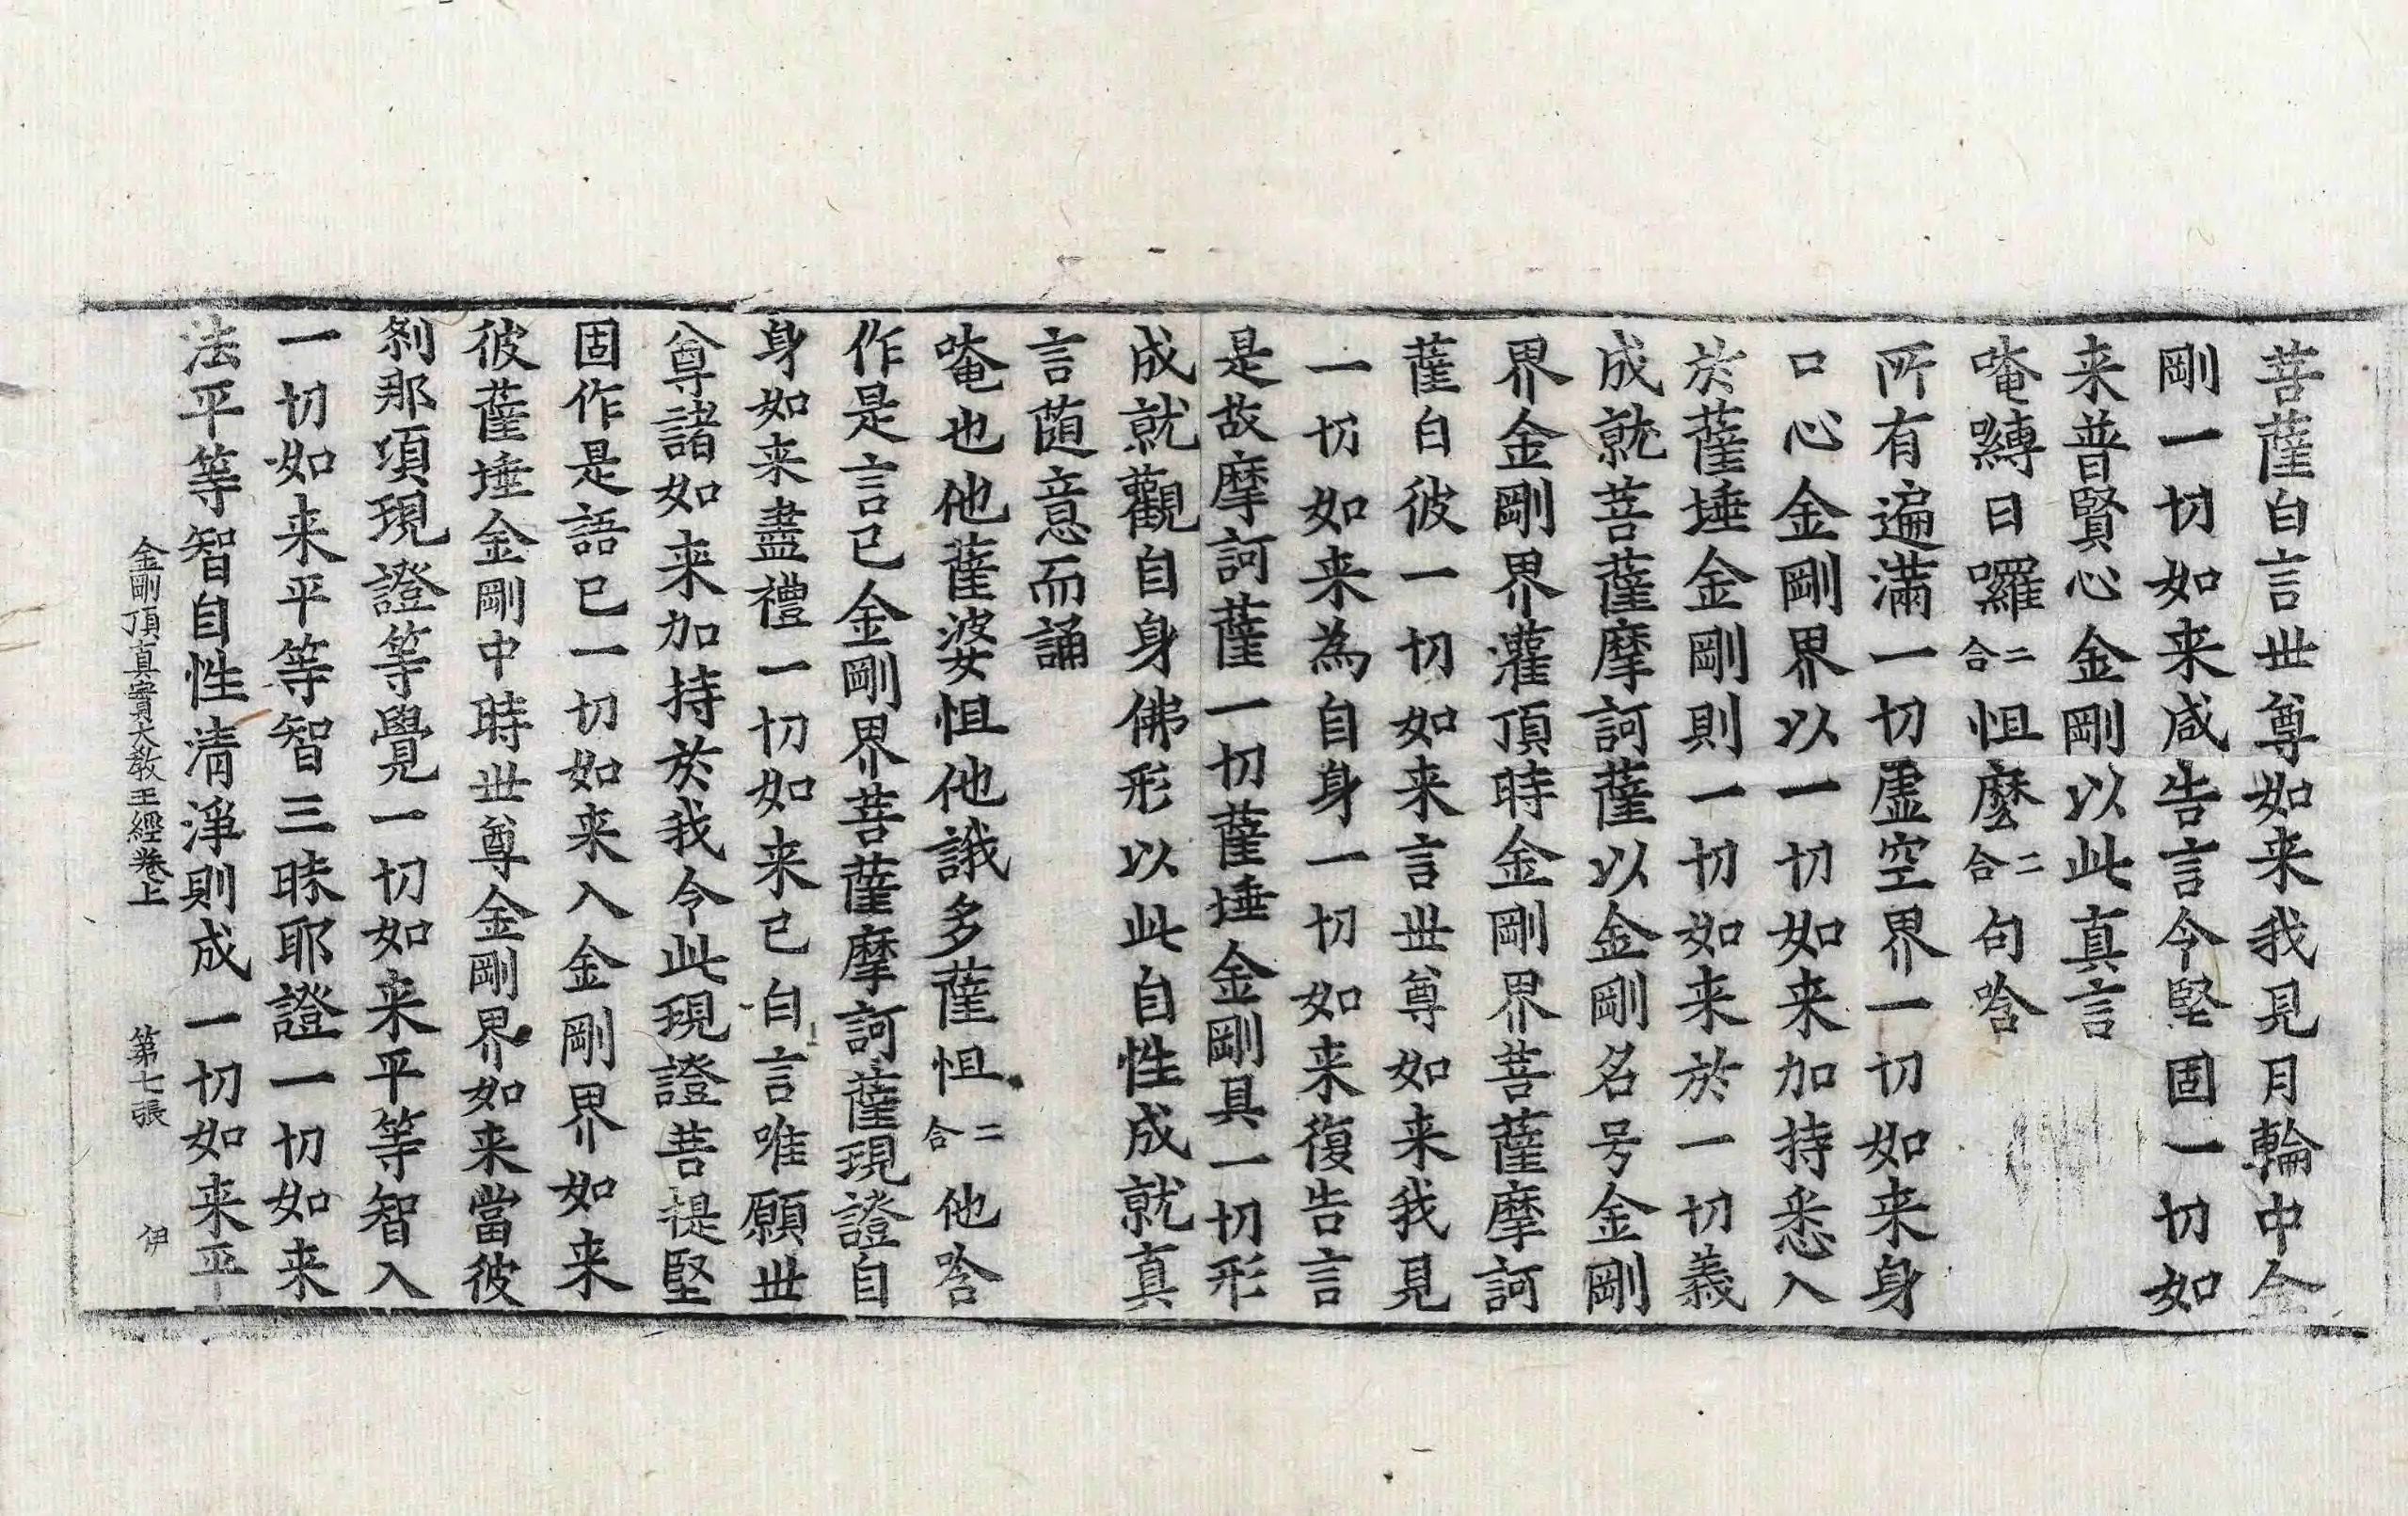 菩薩白言世尊如来我見月輪中金
剛一切如来咸告言今堅固一切如
来普賢心金剛以此真言
唵嚩日囉二合怛麽二合句唅
所有遍滿一切虛空界一切如来身
口心金剛界以一切如来加持悉入
於薩埵金剛則一切如来於一切義
成就菩薩摩訶薩以金剛名号金剛
界金剛界灌頂時金剛界菩薩摩訶
薩白彼一切如来言世尊如来我見
一切如来為自身一切如来復告言
是故摩訶薩一切薩埵金剛具一切形
成就觀自身佛形以此自性成就真
言隨意而誦
唵也他薩婆怛他誐多薩怛二合他唅
作是言已金剛界菩薩摩訶薩現證自
身如来盡禮一切如来已白言唯願世
尊諸如来加持於我令此現證菩提堅
固作是語已一切如来入金剛界如来
彼薩埵金剛中時世尊金剛界如来當彼
刹那頃現證等覺一切如来平等智入
一切如来平等智三昧耶證一切如来
法平等智自性清淨則成一切如来平
金剛頂真實大教王經卷上 第七張 伊